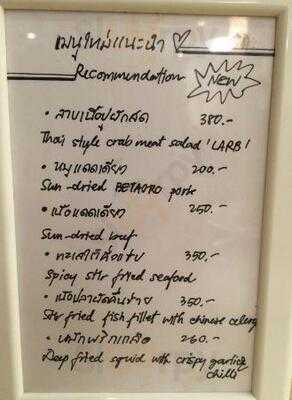 เมนูใหม่แนะนำ
Recommendation
NEW
• ลาบเนื้อปูผักสด 380.-
Thai style crab meat salad 'LARB'
• หมูแดดเดียว 200.-
Sun-dried BETAGRO pork
• เนื้อแดดเดียว 250.-
Sun-dried beef
• ทะเลผัดขี้เมา 350.-
Spicy stir fried seafood
• เนื้อปลาผัดขึ้นฉ่าย 350.-
Stir fried fish fillet with chinese celery
• หมึกพริกเกลือ 260.-
Deep fried squid with crispy garlic &
chilli